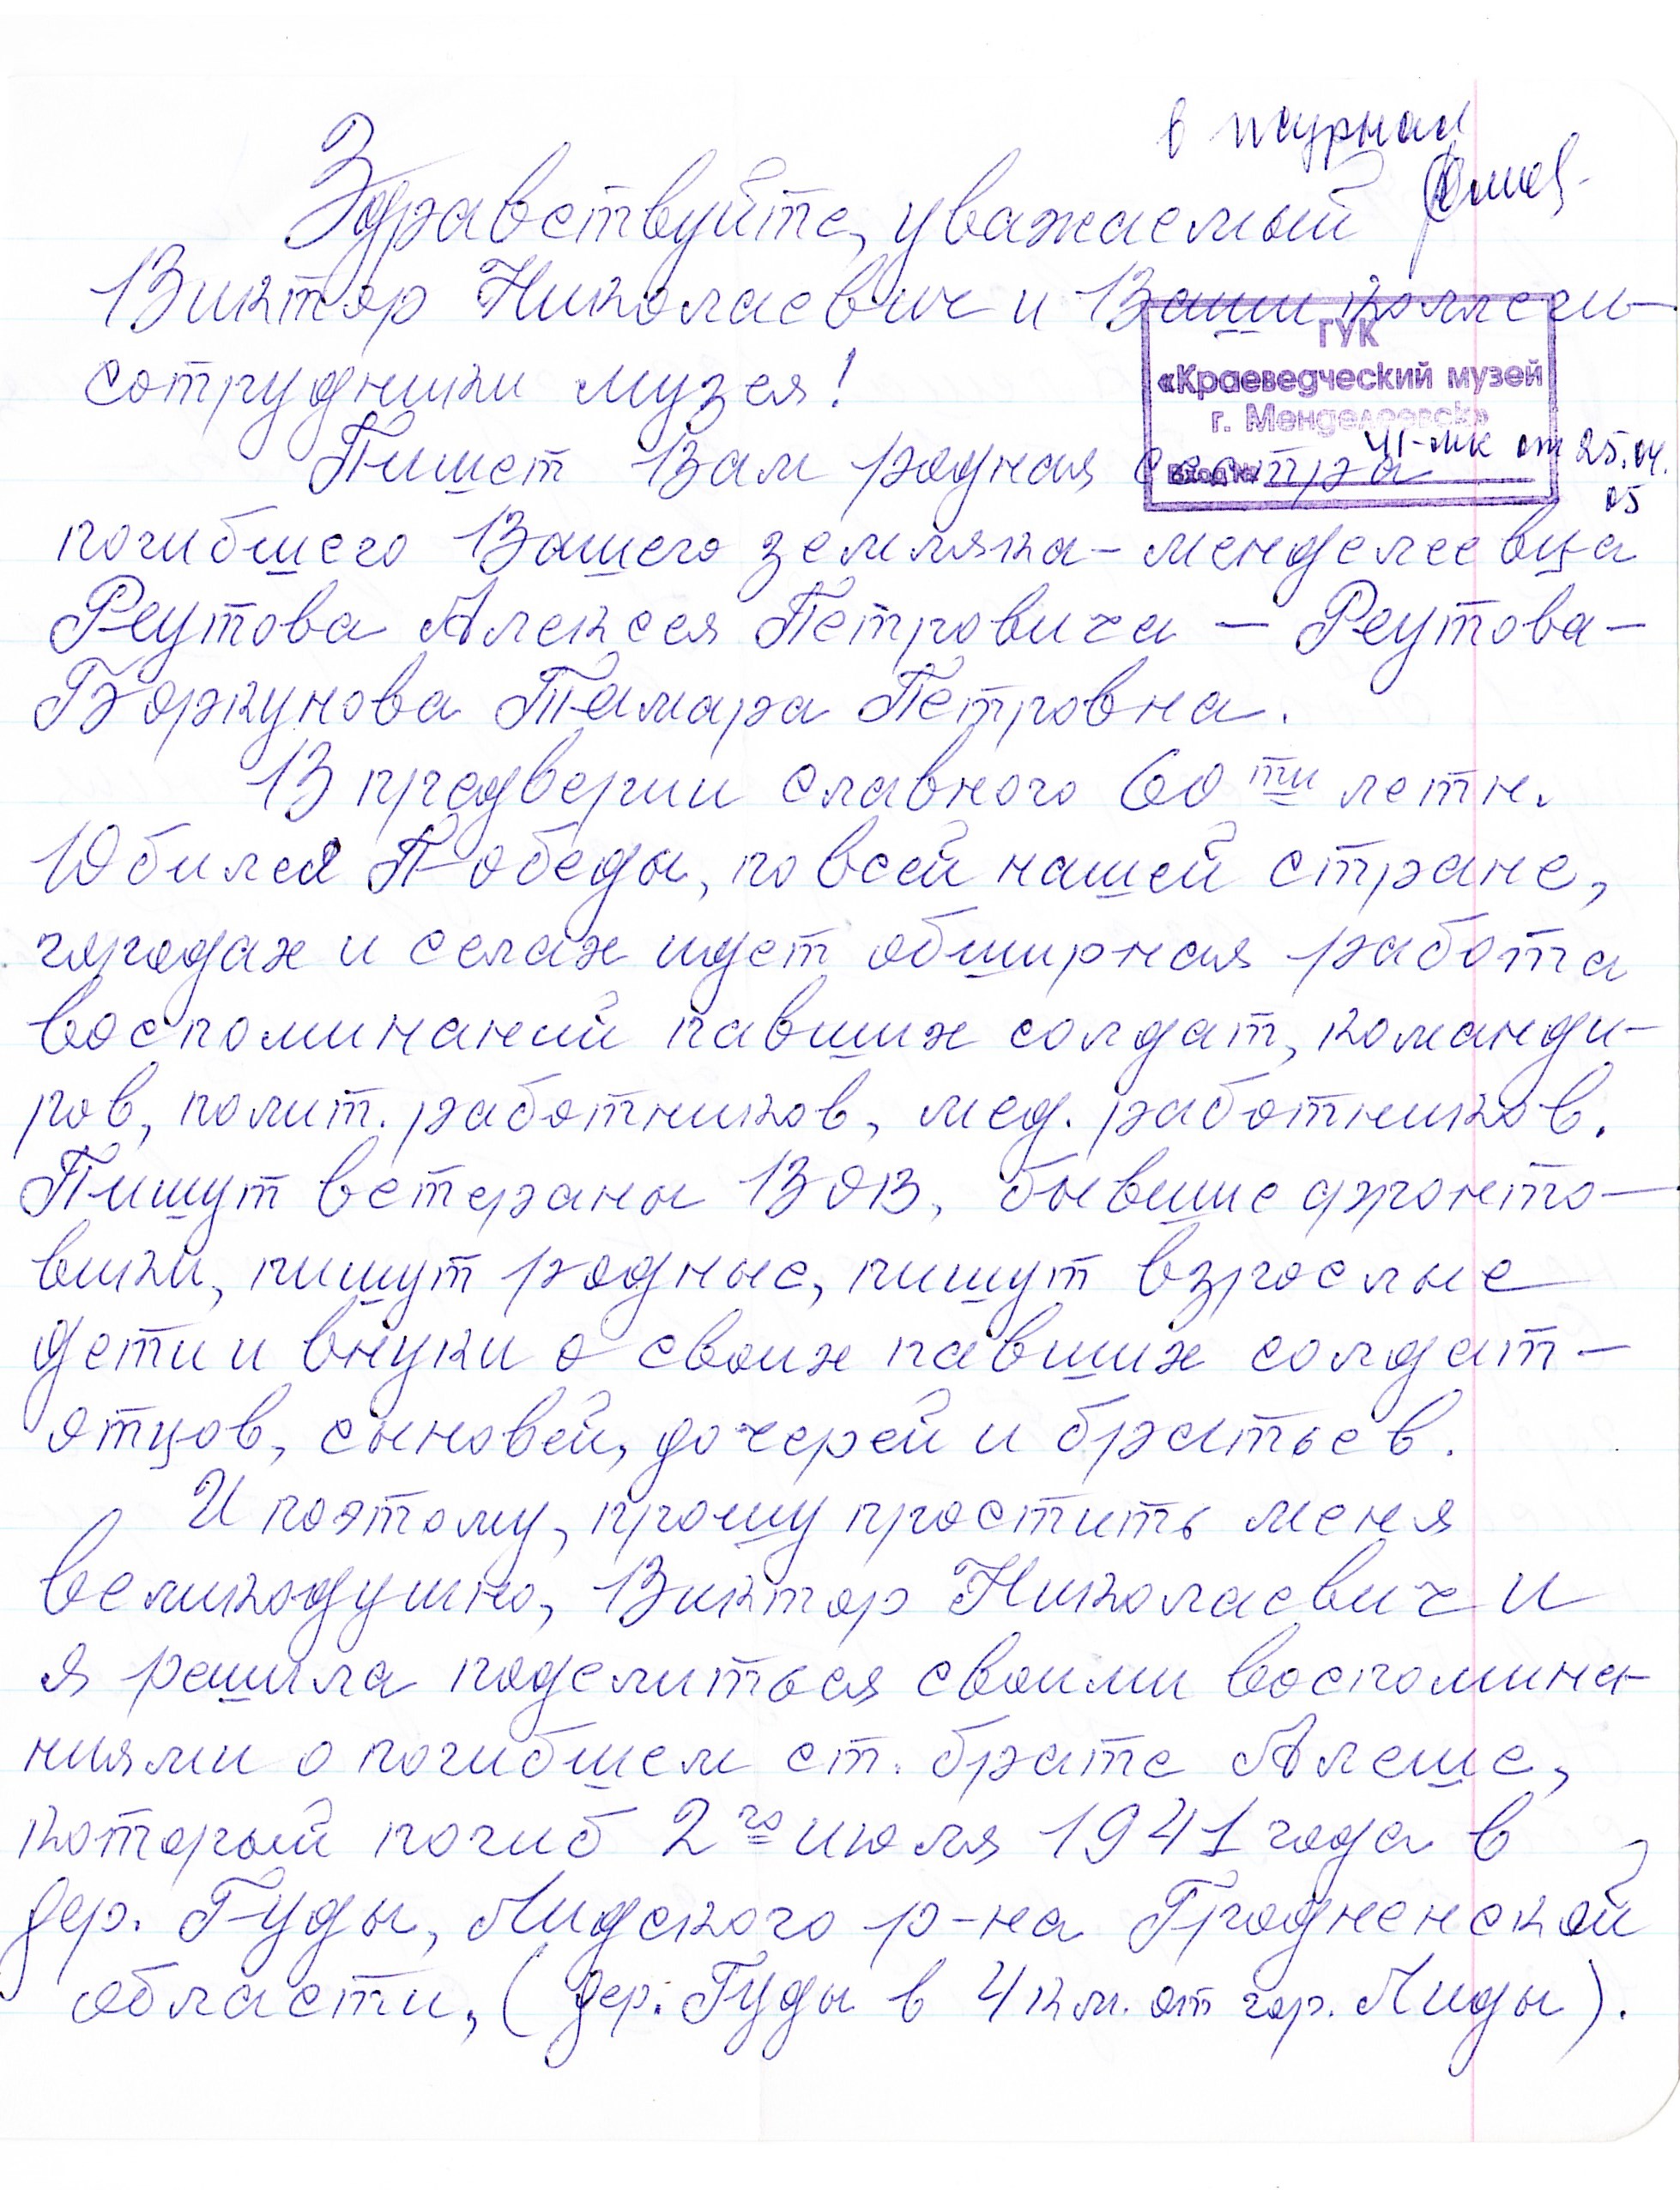 в журнал
Здравствуйте, уважаемый
Виктор Николаевич и Ваши коллеги-
сотрудники музея!
ГУК
«Краеведческий музей
г. Менделеевск»
Вход №
41-мк от 25.04.
05
Пишет Вам родная сестра
погибшего Вашего земляка-менделеевца
Реутова Алексея Петровича – Реутова-
Боркунова Тамара Петровна.
В предверии славного 60ти летн.
Юбилея Победы, по всей нашей стране,
городах и селах идет обширная работа
воспоминаний павших солдат, команди-
ров, полит. работников, мед. работников.
Пишут ветераны ВОВ, бывшие фронто-
вики, пишут родные, пишут взрослые
дети и внуки о своих павших солдат-
отцов, сыновей, дочерей и братьев.
И поэтому, прошу простить меня
великодушно, Виктор Николаевич и
я решила поделиться своими воспомина-
ниями о погибшем ст. брате Алеше,
который погиб 2го июля 1941 года в
дер. Гуды, Лидского р-на Гродненской
области, (дер. Гуды в 4 км. от гор. Лиды).